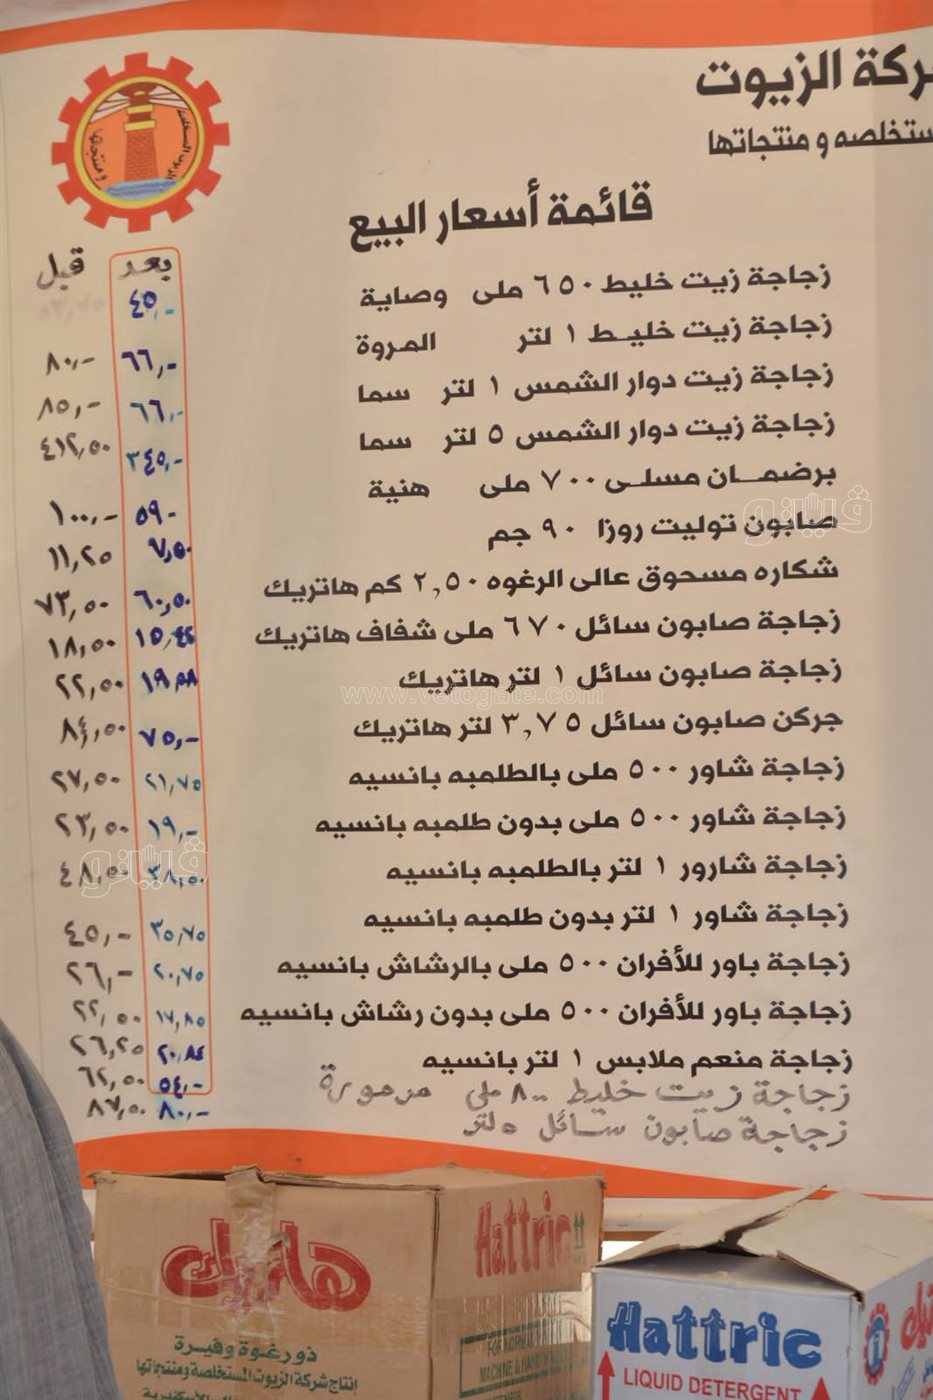 شركة الزيوت
المستخلصه و منتجاتها
قائمة أسعار البيع
بعد قبل
زجاجة زيت خليط ٦٥٠ ملى وصاية ٤٥,-
زجاجة زيت خليط ١ لتر المروة ٦٦,- ٨٠,-
زجاجة زيت دوار الشمس ١ لتر سما ٦٦,- ٨٥,-
زجاجة زيت دوار الشمس ٥ لتر سما ٣٤٥,- ٤١٢,٥٠
برضمان مسلى ٧٠٠ ملى هنية ٥٩- ١٠٠,-
صابون توليت روزا ٩٠ جم ٧,٥٠ ١١,٢٥
شكاره مسحوق عالى الرغوه ٢,٥٠ كم هاتريك ٦٠,٥٠ ٧٣,٥٠
زجاجة صابون سائل ٦٧٠ ملى شفاف هاتريك ١٨,٥٠
زجاجة صابون سائل ١ لتر هاتريك ٢٢,٥٠
جركن صابون سائل ٣,٧٥ لتر هاتريك ٧٥,- ٨٤,٥٠
زجاجة شاور ٥٠٠ ملى بالطلمبه بانسيه ٢١,٧٥ ٢٧,٥٠
زجاجة شاور ٥٠٠ ملى بدون طلمبه بانسيه ١٩,- ٢٣,٥٠
زجاجة شارور ١ لتر بالطلمبه بانسيه ٣٨,٥٠ ٤٨,٥٠
زجاجة شاور ١ لتر بدون طلمبه بانسيه ٣٥,٧٥ ٤٥,-
زجاجة باور للأفران ٥٠٠ ملى بالرشاش بانسيه ٢٠,٧٥ ٢٦,-
زجاجة باور للأفران ٥٠٠ ملى بدون رشاش بانسيه ١٧,٨٥ ٢٢,٥٠
زجاجة منعم ملابس ١ لتر بانسيه ٢٠,٨٤ ٢٦,٢٥
زجاجة زيت خليط ٨٠٠ ملي ٥٤,- ٦٢,٥٠
زجاجة صابون سائل ٥ لتر ٨٠,- ٨٧,٥٠
ڤيتو
www.vetogate.com
ڤيتو
هاتريك
Hattric
ذو رغوة وفيرة
إنتاج شركة الزيوت المستخلصة ومنتجاتها
Hattric
LIQUID DETERGENT